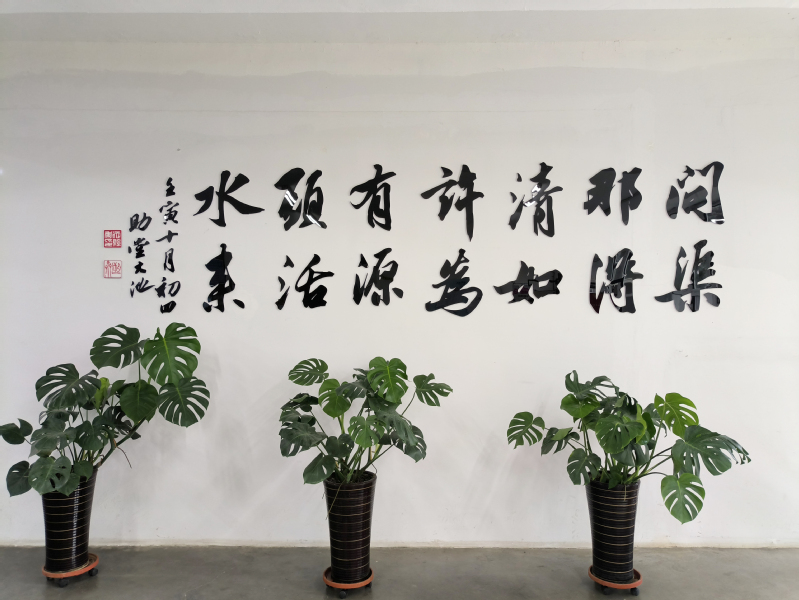 問渠
那得
清如
許為
有源
頭活
水来
壬寅十月初四
助堂大池